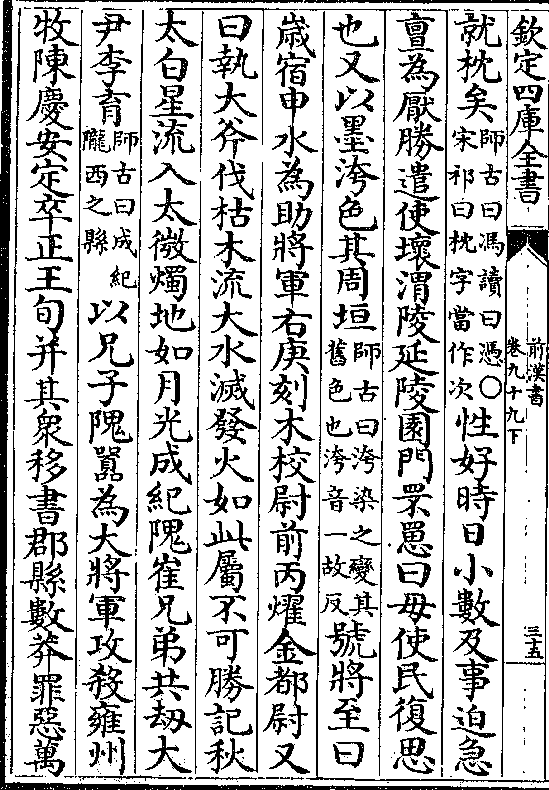 欽定四庫全書
前漢書
卷九十九下
三十五
就枕矣師古曰馮讀曰憑〇宋祁曰枕字當作次性好時日小數及事迫急
亶為厭勝遣使壞渭陵延陵園門罘罳曰毋使民復思
也又以墨洿色其周垣師古曰洿染之變其舊色也洿音一故反號將至曰
歲宿申水為助將軍右庚刻木校尉前丙燿金都尉又
曰執大斧伐枯木流大水滅發火如此屬不可勝記秋
太白星流入太微燭地如月光成紀隗崔兄弟共劫大
尹李育師古曰成紀隴西之縣以兄子隗囂為大將軍攻殺雍州
牧陳慶安定卒正王旬并其衆移書郡縣數莽罪惡萬